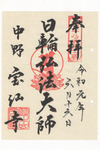 奉拝
令和元年
六月十六日
日輪弘法大師
中野 宝仙寺